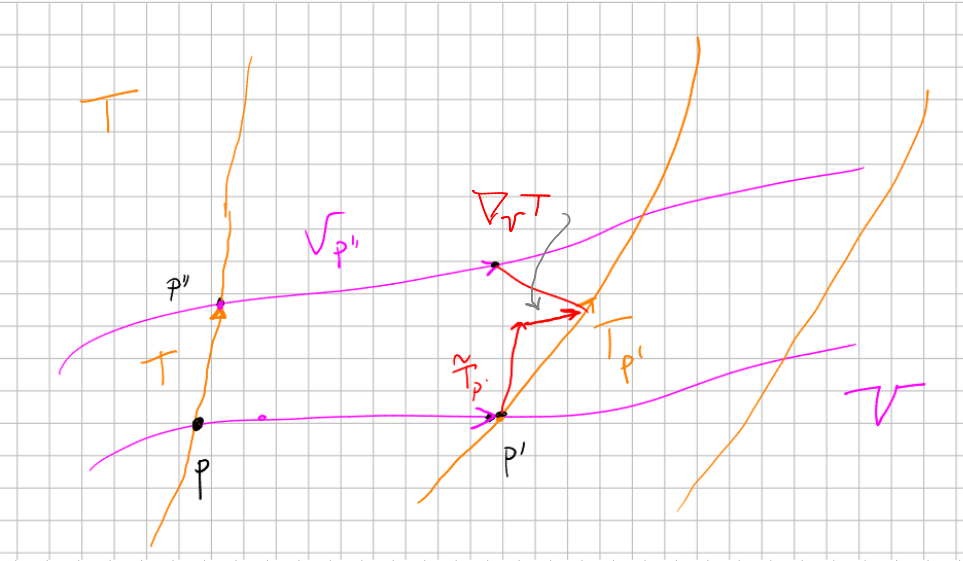 T
∇_V T
V_p''
p''
T
T̃_p
T_p'
V
p
p'